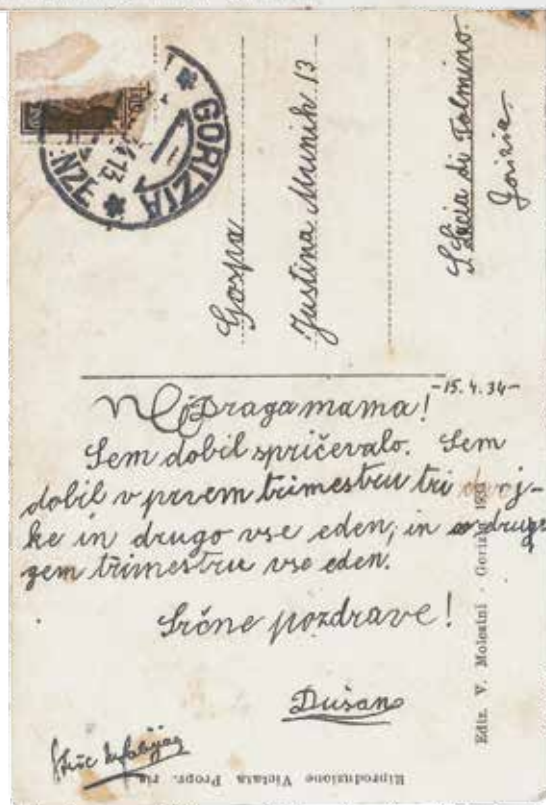 GORIZIA
Gospa
Justina Munih 13
S. Lucia di Tolmino.
Gorizia.
-15.4.34-
Draga mama!
Sem dobil spričevalo. Sem
dobil v prvem trimestru tri dvoj-
ke in drugo vse eden; in drug
gem trimestru vse eden.
Srčne pozdrave!
Dušan
Ediz. V. Molesini - Gorizia
Riproduzione Vietata Propr.